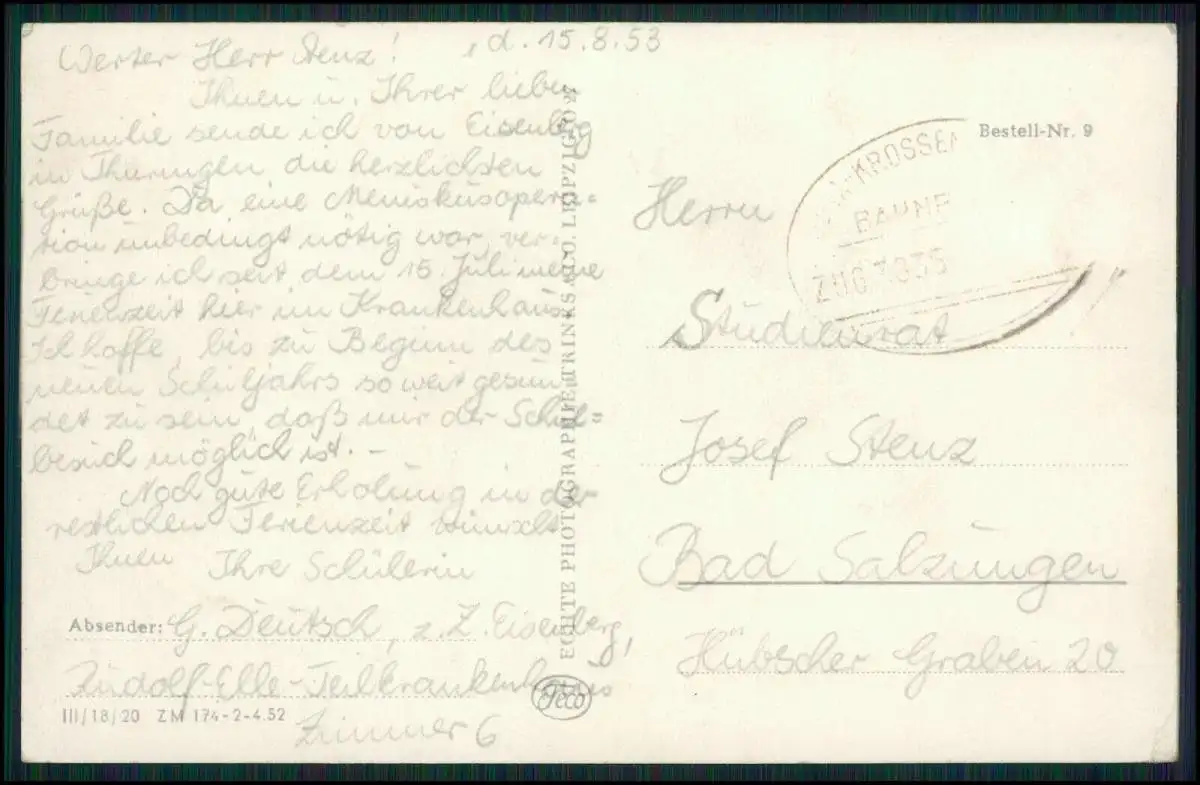 Werter Herr Stenz! , d. 15.8.53
Ihnen u. Ihrer lieben
Familie sende ich von Eisenberg
in Thüringen die herzlichsten
Grüße. Da eine Meniskusopera=
tion unbedingt nötig war, ver=
bringe ich seit dem 15. Juli meine
Ferienzeit hier im Krankenhaus.
Ich hoffe, bis zu Beginn des
neuen Schuljahrs so weit gesun
det zu sein, daß mir der Schul=
besuch möglich ist. –
Noch gute Erholung in der
restlichen Ferienzeit wünscht
Ihnen Ihre Schülerin
Absender: G. Deutsch, z.Z. Eisenberg,
Rudolf-Elle-Teilkrankenhaus
III/18/20 ZM 174-2-4.52
Zimmer 6
ECHTE PHOTOGRAPHIE TRINKS & CO. LEIPZIG
Feco
Bestell-Nr. 9
KROSSEN
BAHNP
ZUG
Herrn
Studienrat
Josef Stenz
Bad Salzungen
Hübscher Graben 20